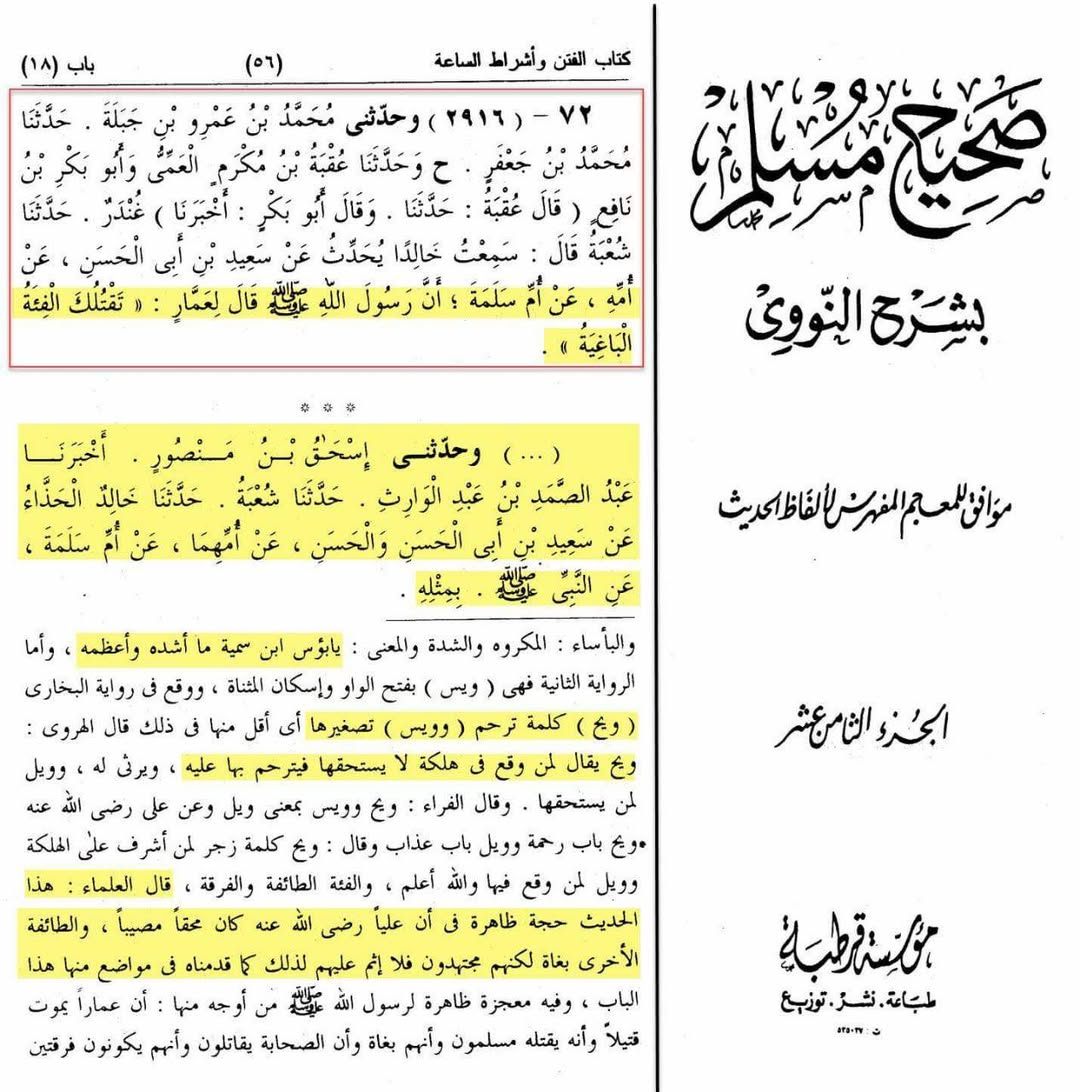 كتاب الفتن وأشراط الساعة (٥٦) باب (١٨)
٧٢ - ( ٢٩١٦ ) وحدّثنى مُحَمَّدُ بْنُ عَمْرِو بْنِ جَبَلَةَ . حَدَّثَنَا
مُحَمَّدُ بْنُ جَعْفَرٍ . ح وَحَدَّثَنَا عُقْبَةُ بْنُ مُكْرَمٍ الْعَمِّىُّ وَأَبُو بَكْرِ بْنُ
نَافِعٍ ( قَالَ عُقْبَةُ : حَدَّثَنَا . وَقَالَ أَبُو بَكْرٍ : أَخْبَرَنَا ) غُنْدَرٌ . حَدَّثَنَا
شُعْبَةُ قَالَ : سَمِعْتُ خَالِدًا يُحَدِّثُ عَنْ سَعِيدِ بْنِ أَبِى الْحَسَنِ ، عَنْ
أُمِّهِ ، عَنْ أُمِّ سَلَمَةَ ؛ أَنَّ رَسُولَ اللّهِ ﷺ قَالَ لِعَمَّارٍ : « تَقْتُلُكَ الْفِئَةُ
الْبَاغِيَةُ » .
* * *
( ... ) وحدّثنـى إِسْحَـٰقُ بْـنُ مَـنْصُورٍ . أَخْبَرَنَـا
عَبْدُ الصَّمَدِ بْنُ عَبْدِ الْوَارِثِ . حَدَّثَنَا شُعْبَةُ . حَدَّثَنَا خَالِدٌ الْحَذَّاءُ
عَنْ سَعِيدِ بْنِ أَبِى الْحَسَنِ وَالْحَسَنِ ، عَنْ أُمِّهِمَا ، عَنْ أُمِّ سَلَمَةَ ،
عَنِ النَّبِىِّ ﷺ . بِمِثْلِهِ .
والبأساء : المكروه والشدة والمعنى : يابؤس ابن سمية ما أشده وأعظمه ، وأما
الرواية الثانية فهى ( ويس ) بفتح الواو وإسكان المثناة ، ووقع فى رواية البخارى
( ويح ) كلمة ترحم ( وويس ) تصغيرها أى أقل منها فى ذلك قال الهروى :
ويح يقال لمن وقع فى هلكة لا يستحقها فيترحم بها عليه ، ويرثى له ، وويل
لمن يستحقها . وقال الفراء : ويح وويس بمعنى ويل وعن على رضى الله عنه
ويح باب رحمة وويل باب عذاب وقال : ويح كلمة زجر لمن أشرف على الهلكة
وويل لمن وقع فيها والله أعلم ، والفئة الطائفة والفرقة ، قال العلماء : هذا
الحديث حجة ظاهرة فى أن علياً رضى الله عنه كان محقاً مصيباً ، والطائفة
الأخرى بغاة لكنهم مجتهدون فلا إثم عليهم لذلك كما قدمناه فى مواضع منها هذا
الباب ، وفيه معجزة ظاهرة لرسول الله ﷺ من أوجه منها : أن عماراً يموت
قتيلاً وأنه يقتله مسلمون وأنهم بغاة وأن الصحابة يقاتلون وأنهم يكونون فرقتين
صَحِيحُ مُسْلِم
بشَرح النَّووى
موَافق للمعجم المفهرس لألفَاظ الحديث
الجزء الثامن عشر
مؤسّسة قرطبة
طبَاعة . نشر . توزيع
ت : ٥٢٥٠٢٧